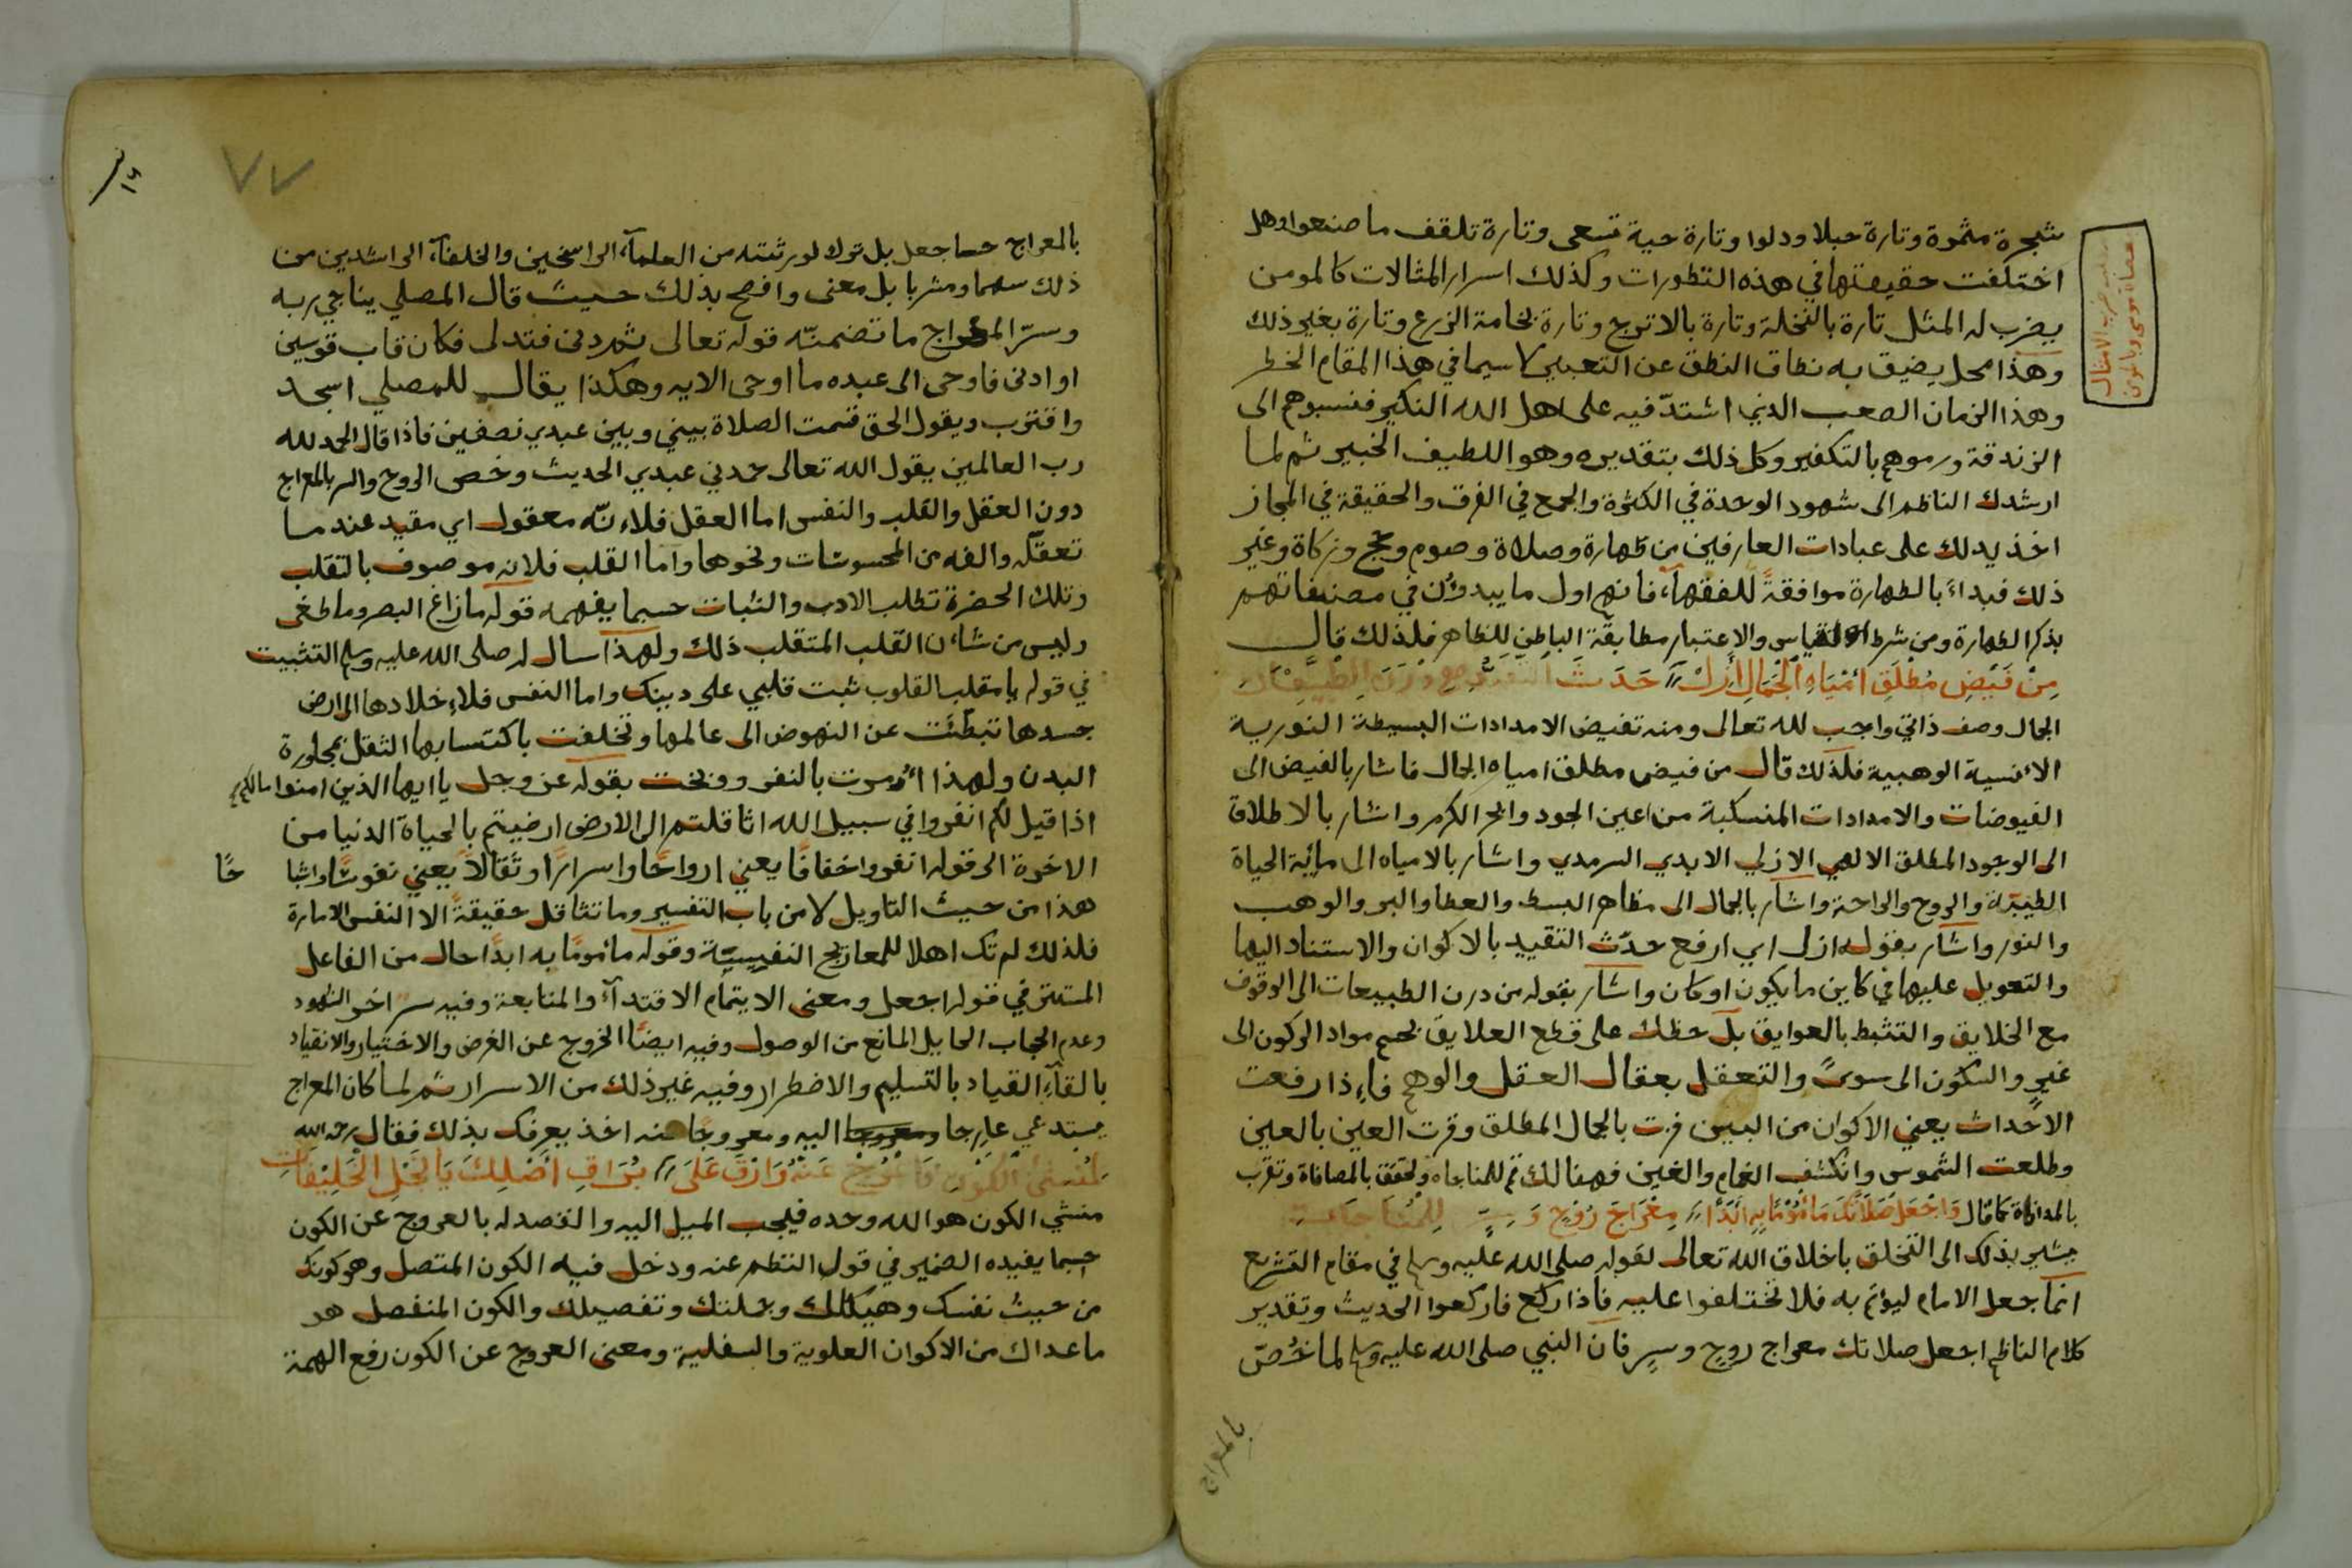 شجرة مثمرة وتارة حبلا ودلوا وتارة حية تسعى وتارة تلقف ما صنعوا وهل
اختلفت حقيقتها في هذه التطورات وكذلك اسرار المثالات كالمومن
يضرب له المثل تارة بالنخلة وتارة بالاترج وتارة بخامة الزرع وتارة بغير ذلك
وهذا محل يضيق به نطاق النطق عن التعبير لا سيما في هذا المقام الخطر
وهذا الزمان الصعب الذي اشتدّ فيه على اهل الله النكير فنسبوهم الى
الزندقة ورموهم بالتكفير وكل ذلك بتقديره وهو اللطيف الخبير ثم لما
ارشدك الناظم الى شهود الوحدة في الكثرة والجمع في الفرق والحقيقة في المجاز
اخذ يدلك على عبادات العارفين من طهارة وصلاة وصوم وحج وزكاة وغير
ذلك فبداء بالطهارة موافقةً للفقهاء فانهم اول ما يبدؤن في مصنفاتهم
بذكر الطهارة ومن شرط القياس والاعتبار مطابقة الباطن للظاهر فلذلك قال
مِنْ فَيْضِ مُطْلَقِ اَمْيَاهِ الْجَمَالِ اَزِلْ // حَدَثَ
الجمال وصف ذاتي واجب لله تعالى ومنه تفيض الامدادات البسيطة النورية
الانسية الوهبية فلذلك قال من فيض مطلق امياه الجمال فاشار بالفيض الى
الفيوضات والامدادات المنسكبة من اعين الجود وابحر الكرم واشار بالاطلاق
الى الوجود المطلق الالهي الازلي الابدي السرمدي واشار بالامياه الى مائية الحياة
الطيبة والروح والراحة واشار بالجمال الى مظاهر البسط والعطا والبر والوهب
والنور واشار بقوله ازل اي ارفع حدث التقييد بالاكوان والاستناد اليها
والتعويل عليها في كاين ما يكون او كان واشار بقوله من درن الطبيعات الى الوقوف
مع الخلايق والتثبط بالعوايق بل حظك على قطع العلايق بحسم مواد الركون الى
غيرٍ والسكون الى سوىً والتعقل بعقال العقل والوهم فاِذا رفعت
الاحداث يعني الاكوان من البين فزت بالجمال المطلق وقرت العين بالعين
وطلعت الشموس وانكشف الغمام والغين فهنالك قم للمناجاه وتحقق بالمصافاة وتقرب
بالمداناة كما قال وَاجْعَلْ صَلَاتَكَ مَأْمُوْمًا بِهِ اَبَدًا // مِعْرَاجَ رُوْحٍ وَسِرٍّ لِلْمُنَاجَاتِ
يشير بذلك الى التخلق باخلاق الله تعالى لقوله صلى الله عليه وسلم في مقام التشريع
انما جعل الامام ليؤتم به فلا تختلفوا عليه فاذا ركع فاركعوا الحديث وتقدير
كلام الناظم اجعل صلاتك معراج روح وسر فان النبي صلى الله عليه وسلم لما خُصّ
بالمعراج
ضرب الامثال
عصاة موسى وبالمومن
٧٧
بالمعراج حسا جعل بل ترك لورثته من العلماء الراسخين والخلفاء الراشدين من
ذلك سهما ومشربا بل معنى وافصح بذلك حيث قال المصلي يناجي ربه
وسرّ المعراج ما تضمنّه قوله تعالى ثم دنى فتدلى فكان قاب قوسين
او ادنى فاوحى الى عبده ما اوحى الايه وهكذا يقال للمصلي اسجد
واقترب ويقول الحق قسمت الصلاة بيني وبين عبدي نصفين فاذا قال الحمد لله
رب العالمين يقول الله تعالى حمدني عبدي الحديث وخص الروح والسر بالمعراج
دون العقل والقلب والنفس اما العقل فلاءنّه معقول اي مقيد عند ما
تعقله والفه من المحسوسات ونحوها واما القلب فلانه موصوف بالتقلب
وتلك الحضرة تطلب الادب والثبات حسبما يفهمه قوله ما زاغ البصر وما طغى
وليس من شاءن القلب المتقلب ذلك ولهذا سال له صلى الله عليه وسلم التثبيت
في قوله يا مقلب القلوب ثبت قلبي على دينك واما النفس فلاءِخلادها الى ارض
جسدها تبطّئت عن النهوض الى عالمها وتخلفت باكتسابها الثقل بمجاورة
البدن ولهذا اُمرت بالنفر ووبخت بقوله عز وجل يا ايها الذين امنوا مالكم
اذا قيل لكم انفروا في سبيل الله اثاقلتم الى الارض ارضيتم بالحياة الدنيا من
الاخرة الى قوله انفروا خفافًا يعني ارواحًا واسرارًا وثقالاً يعني نفوسًا واشبا حًا
هذا من حيث التاويل لا من باب التفسير وما تثاقل حقيقةً الا النفس الامارة
فلذلك لم تك اهلا للمعاريج النفيسية وقوله مأمومًا به ابدًا حال من الفاعل
المستتر في قوله اجعل ومعنى الايتمام الاقتداء والمتابعة وفيه سر اخر الشهود
وعدم الحجاب الحايل المانع من الوصول وفيه ايضًا الخروج عن الغرض والاختيار والانقياد
بالقاءِ القياد بالتسليم والاضطرار وفيه غير ذلك من الاسرار ثم لما كان المعراج
يستدعي عارجا ومعروجا اليه ومعروجا عنه اخذ يعرفك بذلك فقال رحمه الله
لمُنشئ الكَوْنِ فَاعْرُجْ عَنْهُ وَارْقَ عَلَى // بُرَاقِ اَصْلِكَ يَا نَجْلَ الْخَلِيْفَاتِ
منشي الكون هو الله وحده فيجب الميل اليه والقصد له بالعروج عن الكون
حسبما يفيده الضمير في قول النظم عنه ودخل فيه الكون المتصل وهو كونك
من حيث نفسك وهيكلك وجملتك وتفصيلك والكون المنفصل هو
ما عداك من الاكوان العلوية والسفلية ومعنى العروج عن الكون رفع الهمة